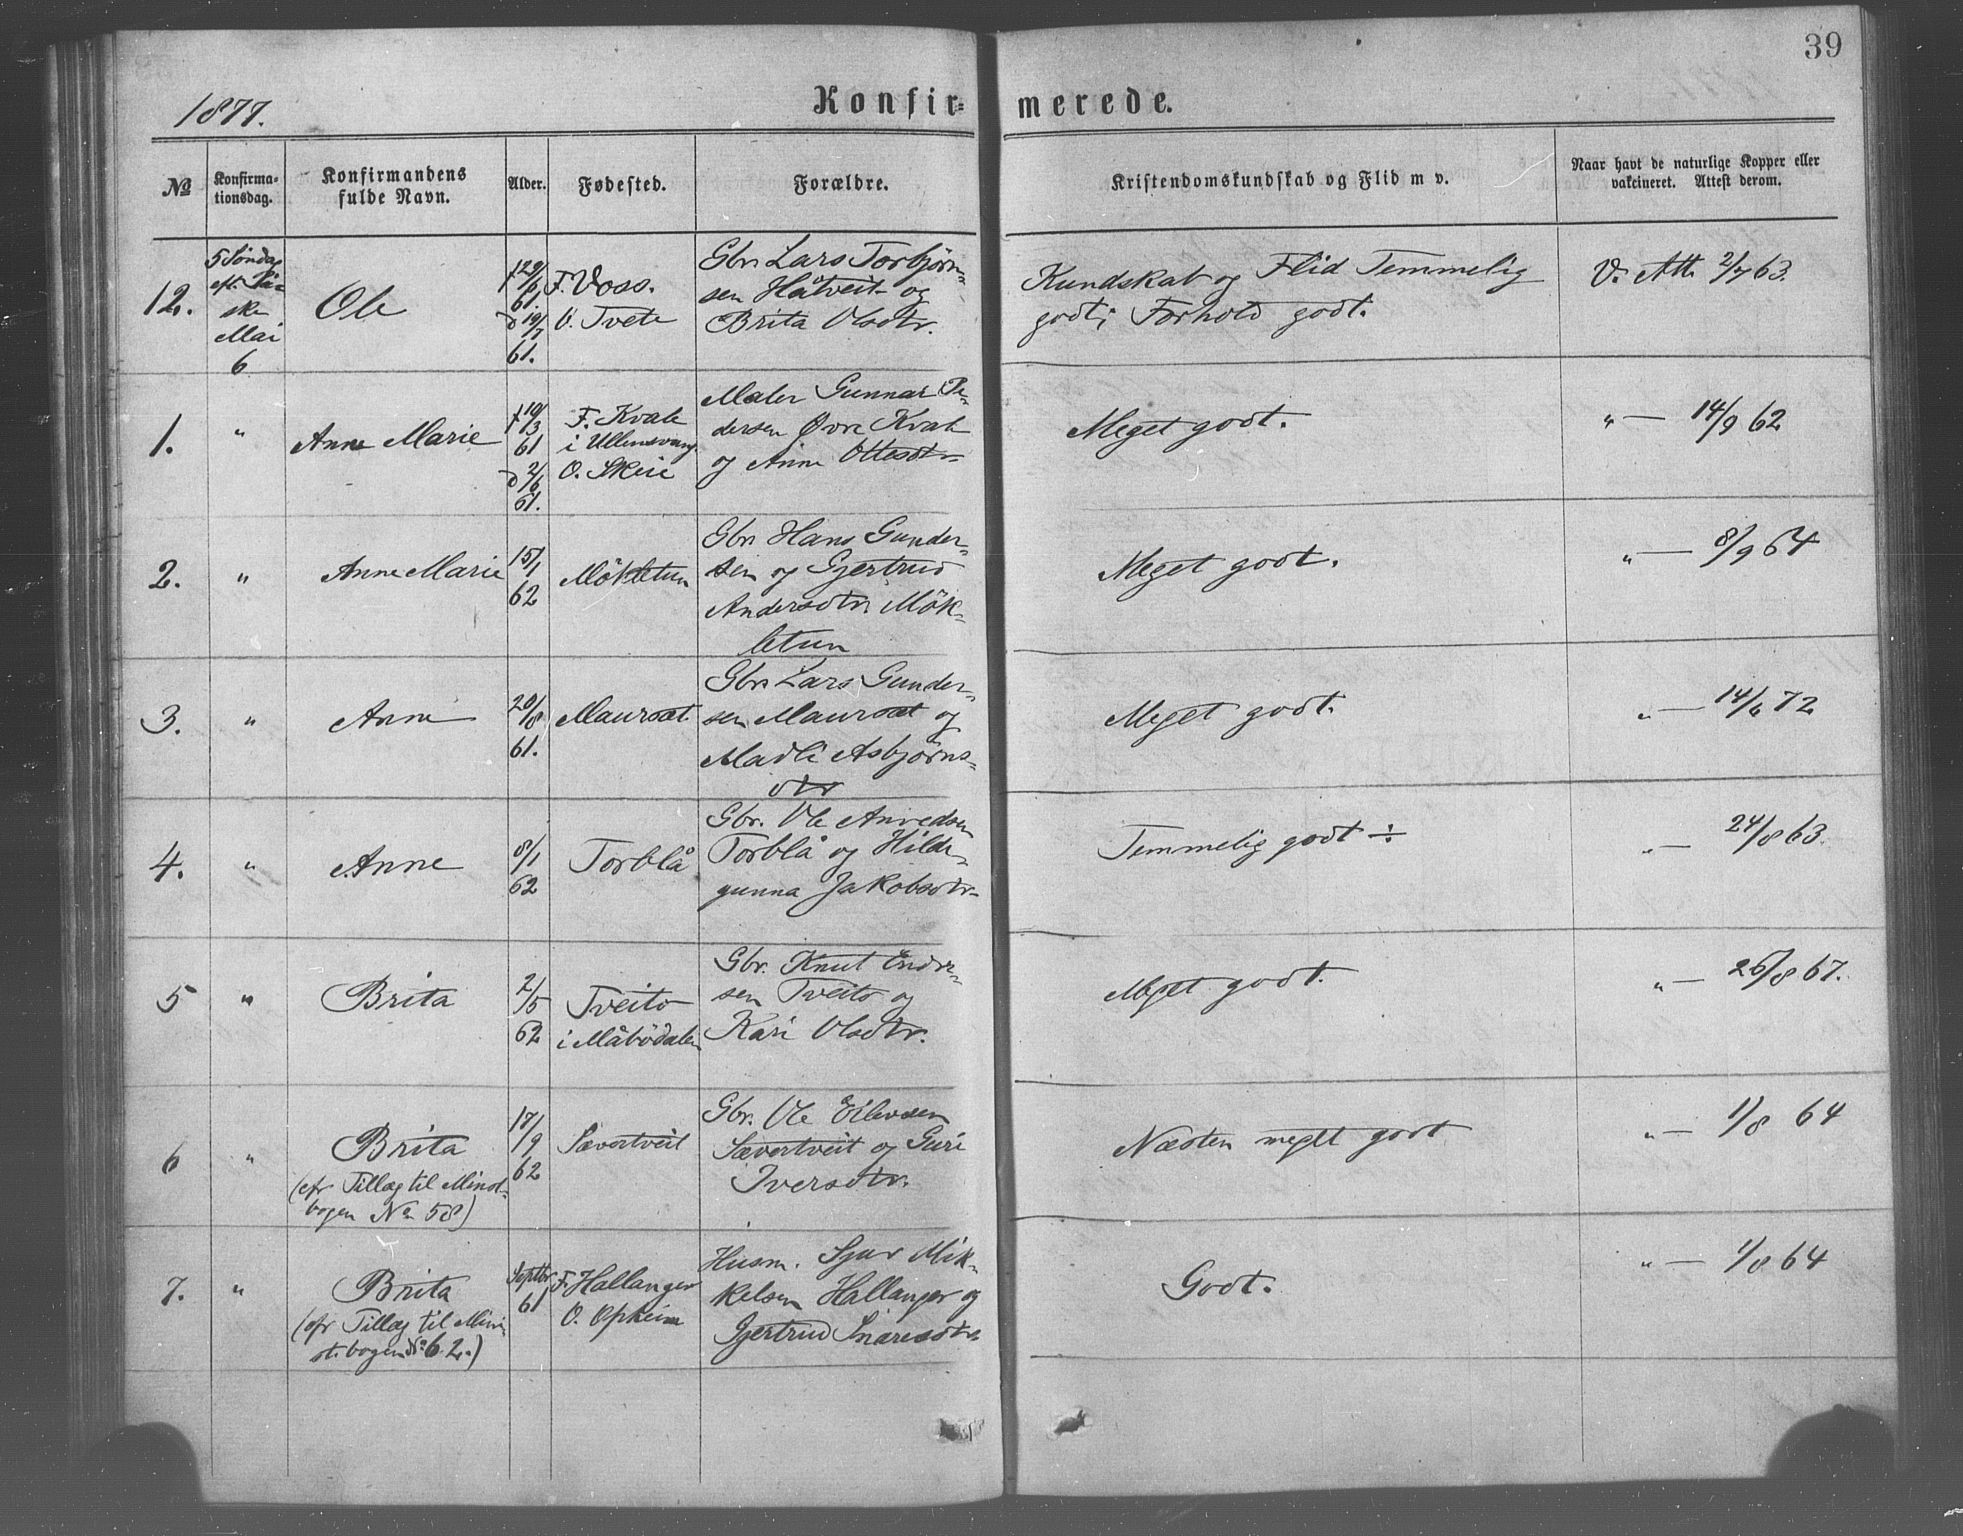 39
1877.
Konfir=
merede.
No
Konfirma-
tionsdag.
Konfirmandens
fulde Navn.
Alder.
Fødested.
Forældre.
Kristendomskundskab og Flid m v.
Naar havt de naturlige Kopper eller
vakcineret. Attest derom.
12.
5 Søndag
eft. På-
ske
Mai
6
Ole
f 29/6
61.
d 19/7
61.
F. Voss.
O. Tvete
Gbr. Lars Torbjørn-
sen Håtveit og
Brita Olsdtr.
Kundskab og Flid Temmelig
godt; Forhold godt.
V. Att. 2/7 63.
1.
"
Anne Marie
f 10/3
61
d 2/6
61.
F. Kvale
i Ullensvang
O. Skeie
Maler Gunnar Pe-
dersen Øvre Kvale
og Anne Ottesdtr.
Meget godt.
" — 14/9 62
2.
"
Anne Marie
15/1
62
Mökletun
Gbr. Hans Gunder-
sen og Gjertrud
Andersdtr. Mök-
letun
Meget godt.
" — 8/9 64
3.
"
Anne
20/8
61.
Maursæt
Gbr. Lars Gunder-
sen Maursæt og
Madli Asbjørns-
dtr
Meget godt.
" — 14/6 72
4.
"
Anne
8/1
62
Torblå
Gbr. Ole Anvedsen
Torblå og Hilde-
gunna Jakobsdtr.
Temmelig godt ÷
" — 24/8 63.
5
"
Brita
2/5
62
Tveito
i Måbödalen
Gbr. Knut Endre-
sen Tveito og
Kari Olsdtr.
Meget godt.
" — 26/8 67.
6
"
Brita
(cfr Tillæg til Minist-
bogen No 58)
17/9
62
Sævertveit
Gbr. Ole Eilevsen
Sævertveit og Guri
Iversdtr.
Næsten meget godt
" — 1/8 64
7.
"
Brita
(cfr Tillæg til Mini-
st.bogen No 62.)
Septbr
61
F. Hallanger
O. Opheim
Husm. Sjur Mik-
kelsen Hallanger og
Gjertrud Snaresdtr.
Godt.
" — 1/8 64